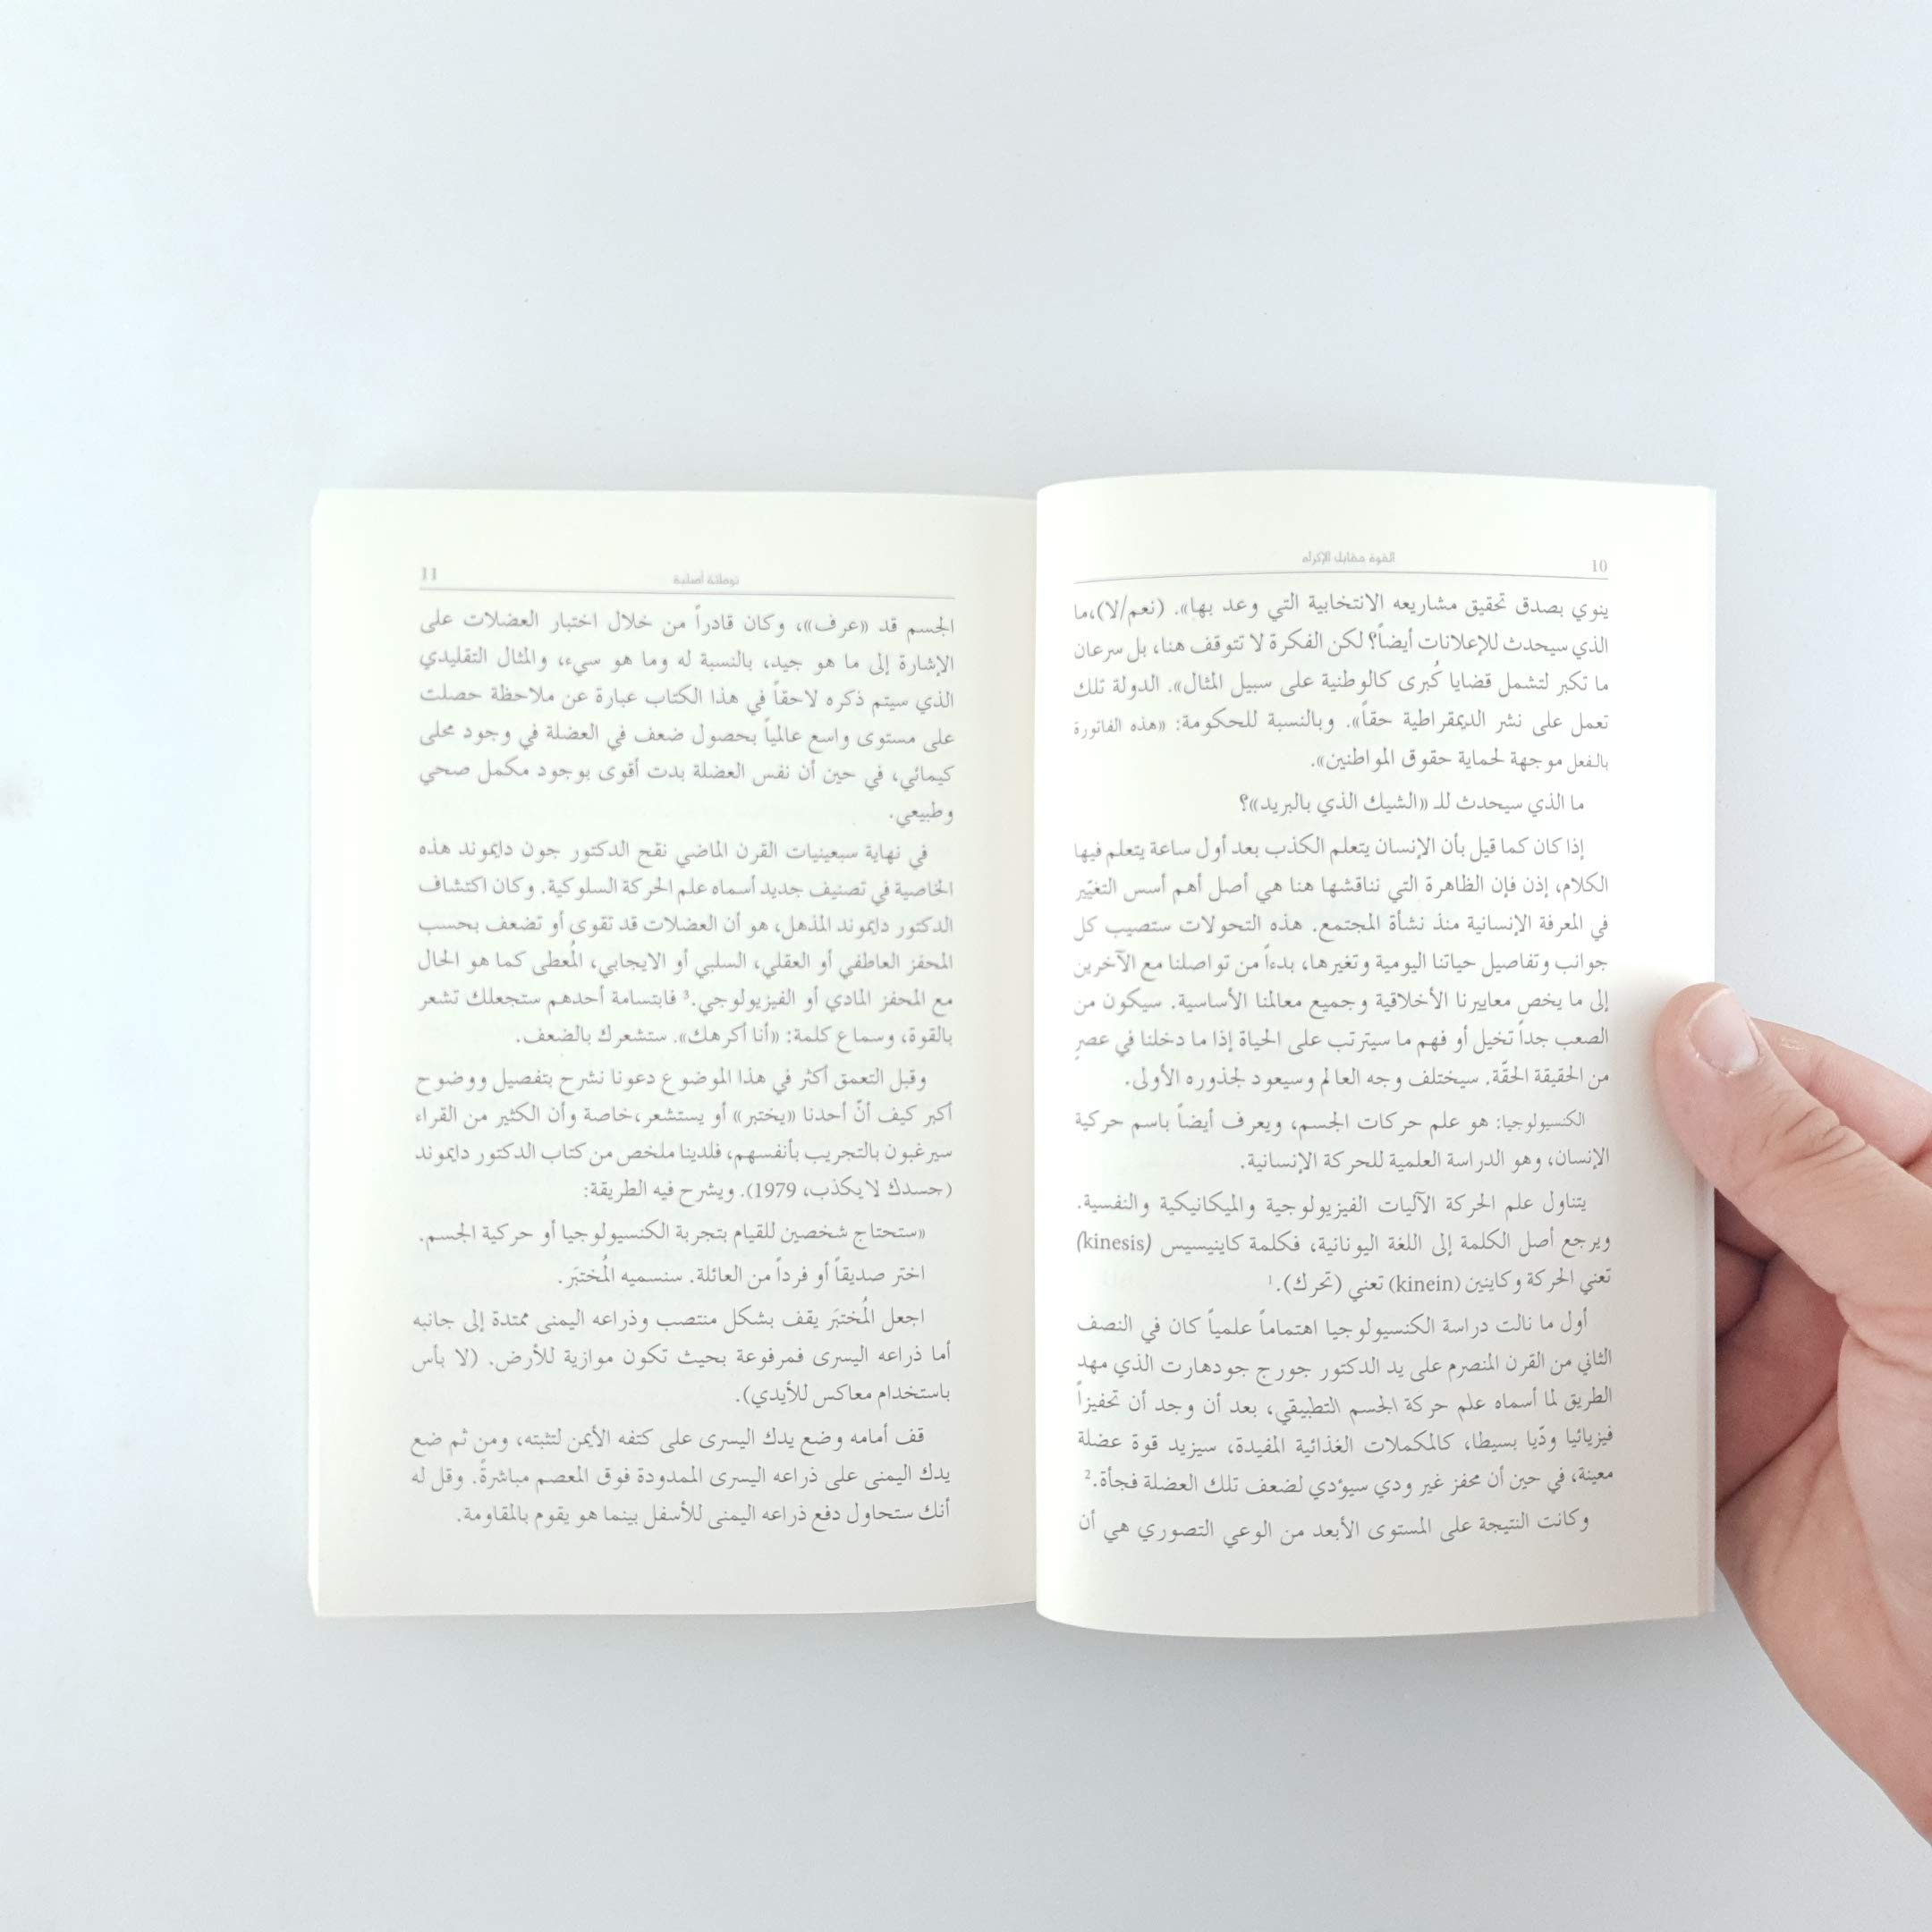 10
القوة مقابل الإكراه
ينوي بصدق تحقيق مشاريعه الانتخابية التي وعد بها». (نعم/لا)،ما
الذي سيحدث للإعلانات أيضاً؟ لكن الفكرة لا تتوقف هنا، بل سرعان
ما تكبر لتشمل قضايا كُبرى كالوطنية على سبيل المثال». الدولة تلك
تعمل على نشر الديمقراطية حقاً». وبالنسبة للحكومة: «هذه الفاتورة
بالفعل موجهة لحماية حقوق المواطنين».
ما الذي سيحدث للـ «الشيك الذي بالبريد»؟
إذا كان كما قيل بأن الإنسان يتعلم الكذب بعد أول ساعة يتعلم فيها
الكلام، إذن فإن الظاهرة التي نناقشها هنا هي أصل أهم أسس التغيّير
في المعرفة الإنسانية منذ نشأة المجتمع. هذه التحولات ستصيب كل
جوانب وتفاصيل حياتنا اليومية وتغيرها، بدءاً من تواصلنا مع الآخرين
إلى ما يخص معاييرنا الأخلاقية وجميع معالمنا الأساسية. سيكون من
الصعب جداً تخيل أو فهم ما سيترتب على الحياة إذا ما دخلنا في عصرٍ
من الحقيقة الحقّة. سيختلف وجه العالم وسيعود لجذوره الأولى.
الكنسيولوجيا: هو علم حركات الجسم، ويعرف أيضاً باسم حركية
الإنسان، وهو الدراسة العلمية للحركة الإنسانية.
يتناول علم الحركة الآليات الفيزيولوجية والميكانيكية والنفسية.
ويرجع أصل الكلمة إلى اللغة اليونانية، فكلمة كاينيسيس (kinesis)
تعني الحركة وكاينين (kinein) تعني (تحرك).¹
أول ما نالت دراسة الكنسيولوجيا اهتماماً علمياً كان في النصف
الثاني من القرن المنصرم على يد الدكتور جورج جودهارت الذي مهد
الطريق لما أسماه علم حركة الجسم التطبيقي، بعد أن وجد أن تحفيزاً
فيزيائيا ودّيا بسيطا، كالمكملات الغذائية المفيدة، سيزيد قوة عضلة
معينة، في حين أن محفز غير ودي سيؤدي لضعف تلك العضلة فجأة.²
وكانت النتيجة على المستوى الأبعد من الوعي التصوري هي أن
توطئة أصلية
11
الجسم قد «عرف»، وكان قادراً من خلال اختبار العضلات على
الإشارة إلى ما هو جيد، بالنسبة له وما هو سيء، والمثال التقليدي
الذي سيتم ذكره لاحقاً في هذا الكتاب عبارة عن ملاحظة حصلت
على مستوى واسع عالمياً بحصول ضعف في العضلة في وجود محلى
كيمائي، في حين أن نفس العضلة بدت أقوى بوجود مكمل صحي
وطبيعي.
في نهاية سبعينيات القرن الماضي نقح الدكتور جون دايموند هذه
الخاصية في تصنيف جديد أسماه علم الحركة السلوكية. وكان اكتشاف
الدكتور دايموند المذهل، هو أن العضلات قد تقوى أو تضعف بحسب
المحفز العاطفي أو العقلي، السلبي أو الايجابي، المُعطى كما هو الحال
مع المحفز المادي أو الفيزيولوجي.³ فابتسامة أحدهم ستجعلك تشعر
بالقوة، وسماع كلمة: «أنا أكرهك». ستشعرك بالضعف.
وقبل التعمق أكثر في هذا الموضوع دعونا نشرح بتفصيل ووضوح
أكبر كيف أنّ أحدنا «يختبر» أو يستشعر،خاصة وأن الكثير من القراء
سيرغبون بالتجريب بأنفسهم، فلدينا ملخص من كتاب الدكتور دايموند
(جسدك لا يكذب، 1979). ويشرح فيه الطريقة:
«ستحتاج شخصين للقيام بتجربة الكنسيولوجيا أو حركية الجسم.
اختر صديقاً أو فرداً من العائلة. سنسميه المُختبَر.
اجعل المُختبَر يقف بشكل منتصب وذراعه اليمنى ممتدة إلى جانبه
أما ذراعه اليسرى فمرفوعة بحيث تكون موازية للأرض. (لا بأس
باستخدام معاكس للأيدي).
قف أمامه وضع يدك اليسرى على كتفه الأيمن لتثبته، ومن ثم ضع
يدك اليمنى على ذراعه اليسرى الممدودة فوق المعصم مباشرةً. وقل له
أنك ستحاول دفع ذراعه اليمنى للأسفل بينما هو يقوم بالمقاومة.